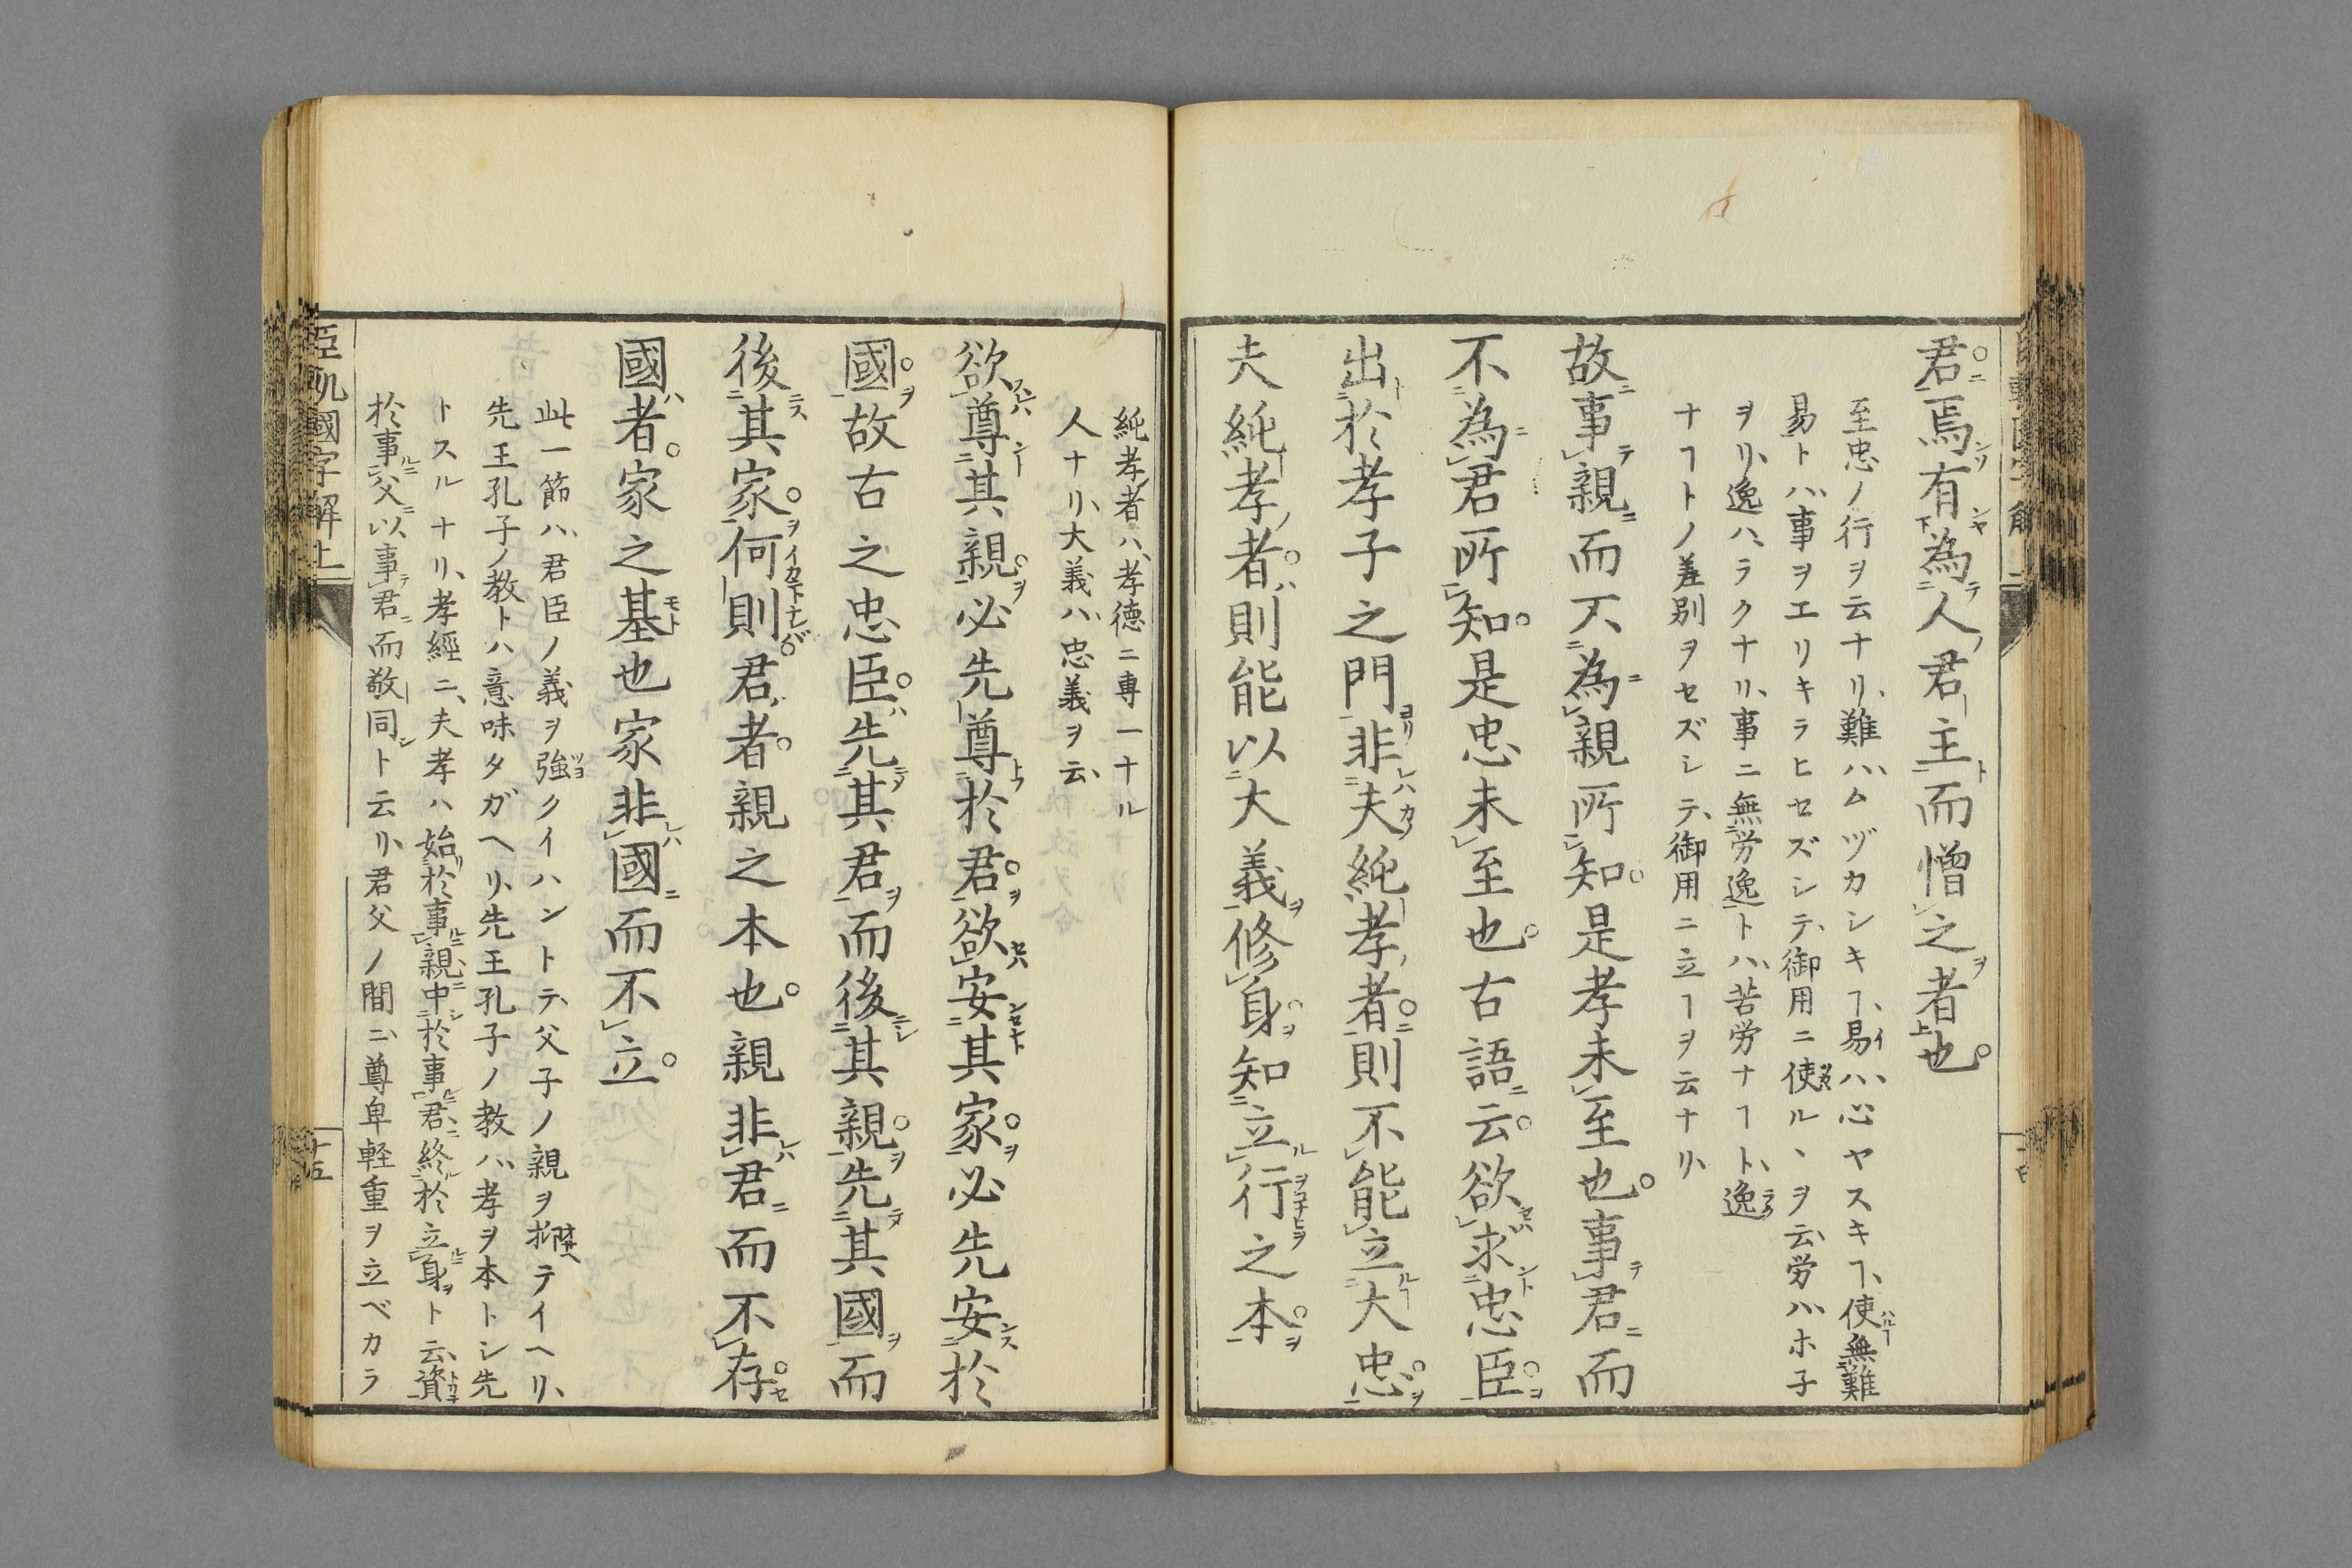 君焉有為人君主而憎之者也
至忠ノ行ヲ云ナリ、難ハ、ムヅカシキヿ、易ハ、心ヤスキヿ、使無難
易トハ、事ヲエリキラヒセズシテ、御用ニ使ル、ヲ云、労ハ、ホ子
ヲリ、逸ハ、ラクナリ、事ニ無労逸トハ、苦労ナヿト、逸
ナヿトノ差別ヲセズシテ、御用ニ立ヿヲ云ナリ、
故事親而不為親所知是孝未至也事君而
不為君所知是忠未至也古語云欲求忠臣
出於孝子之門非夫純孝者則不能立大忠
夫純孝者則能以大義修身知立行之本
純孝者ハ、孝徳ニ専一ナル
人ナリ、大義ハ、忠義ヲ云、
欲尊其親必先尊於君欲安其家必先安於
國故古之忠臣先其君而後其親先其國而
後其家何則君者親之本也親非君而不存
國者家之基也家非國而不立
此一節ハ、君臣ノ義ヲ強クイハントテ、父子ノ親ヲ抑テイヘリ、
先王孔子ノ教トハ意味タガヘリ、先王孔子ノ教ハ、孝ヲ本トシ先
トスルナリ、孝經ニ、夫孝ハ始於事親中於事君終於立身ト云、資
於事父以事君而敬同ト云リ、君父ノ間ニ、尊卑軽重ヲ立ベカラ
臣軌國字解上
十五